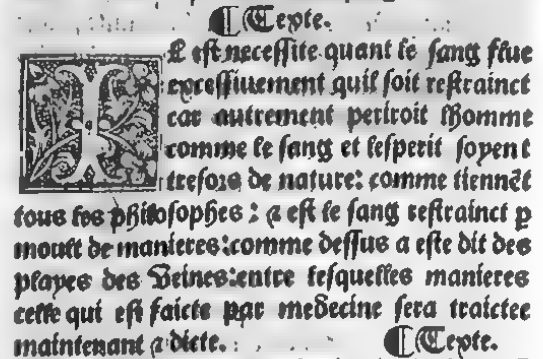 ¶ Texte.
Il est necessite quant le sang flue
excessiuement quil soit restrainct
car autrement periroit lhomme
comme le sang et lesperit soyent
tresors de nature: comme tiennẽt
tous les philosophes: ⁊ est le sang restrainct p
moult de manieres: comme dessus a este dit des
playes des Veines: entre lesquelles manieres
celle qui est faicte par medecine sera traictee
maintenant ⁊ dicte. ¶ Texte.